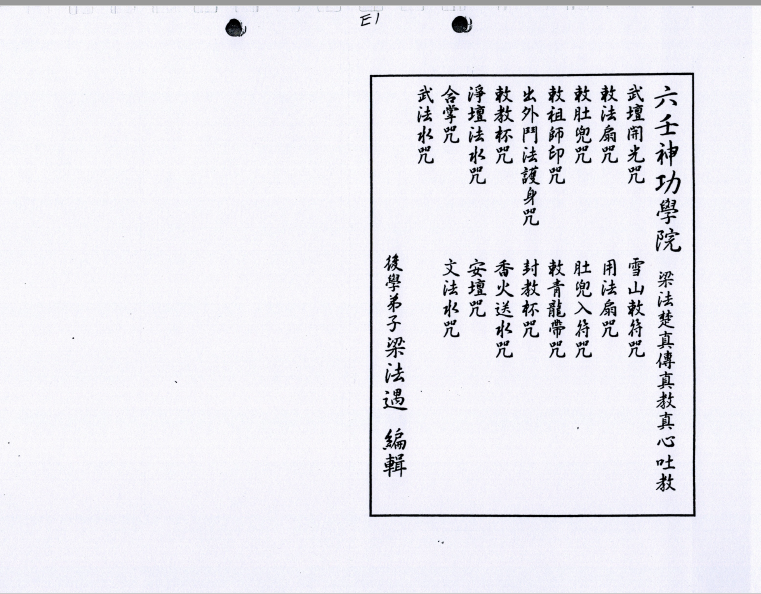 E1
六壬神功學院 梁法楚真傳真教真心吐教
武壇開光咒 雪山敕符咒
敕法扇咒 用法扇咒
敕肚兜咒 肚兜入符咒
敕祖師印咒 敕青龍帶咒
出外鬥法護身咒 封教杯咒
敕教杯咒 香火送水咒
淨壇法水咒 安壇咒
合掌咒 文法水咒
武法水咒
後學弟子梁法遇 編輯